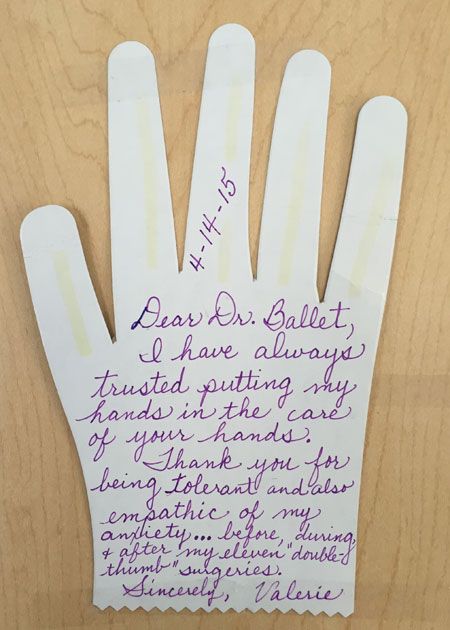 4-14-15
Dear Dr. Ballet,
I have always
trusted putting my
hands in the care
of your hands.
Thank you for
being tolerant and also
empathic of my
anxiety... before, during,
& after my eleven "double-
thumb" surgeries.
Sincerely, Valerie